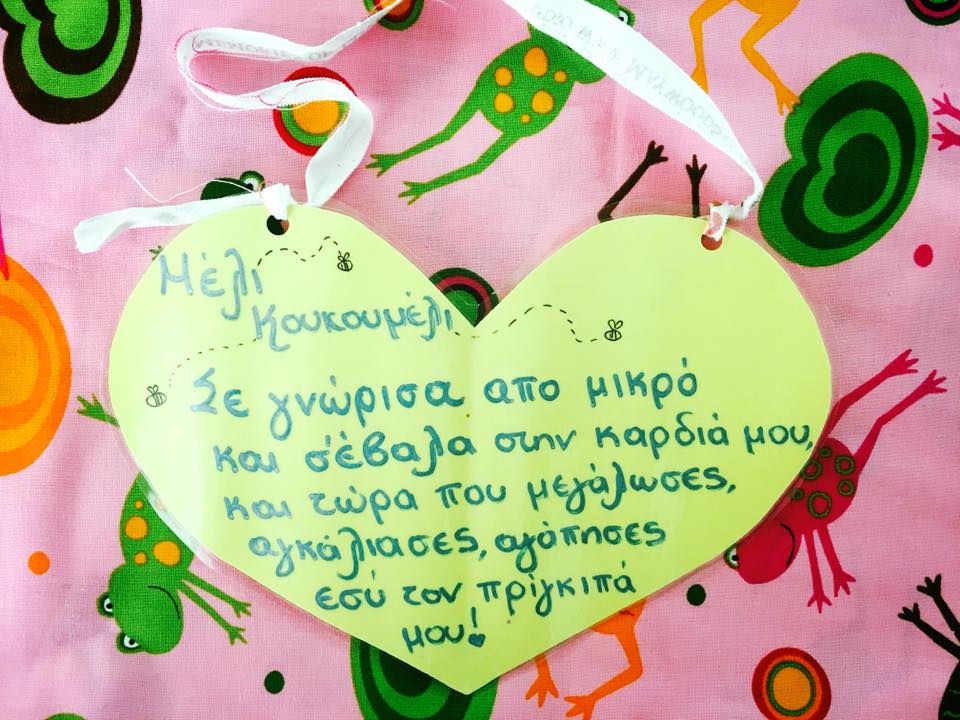 Μέλι
Κουκουμέλι
Σε γνώρισα απο μικρό
και σ'έβαλα στην καρδιά μου,
και τώρα που μεγάλωσες,
αγκάλιασες, αγάπησες
εσύ τον πρίγκιπά
μου!